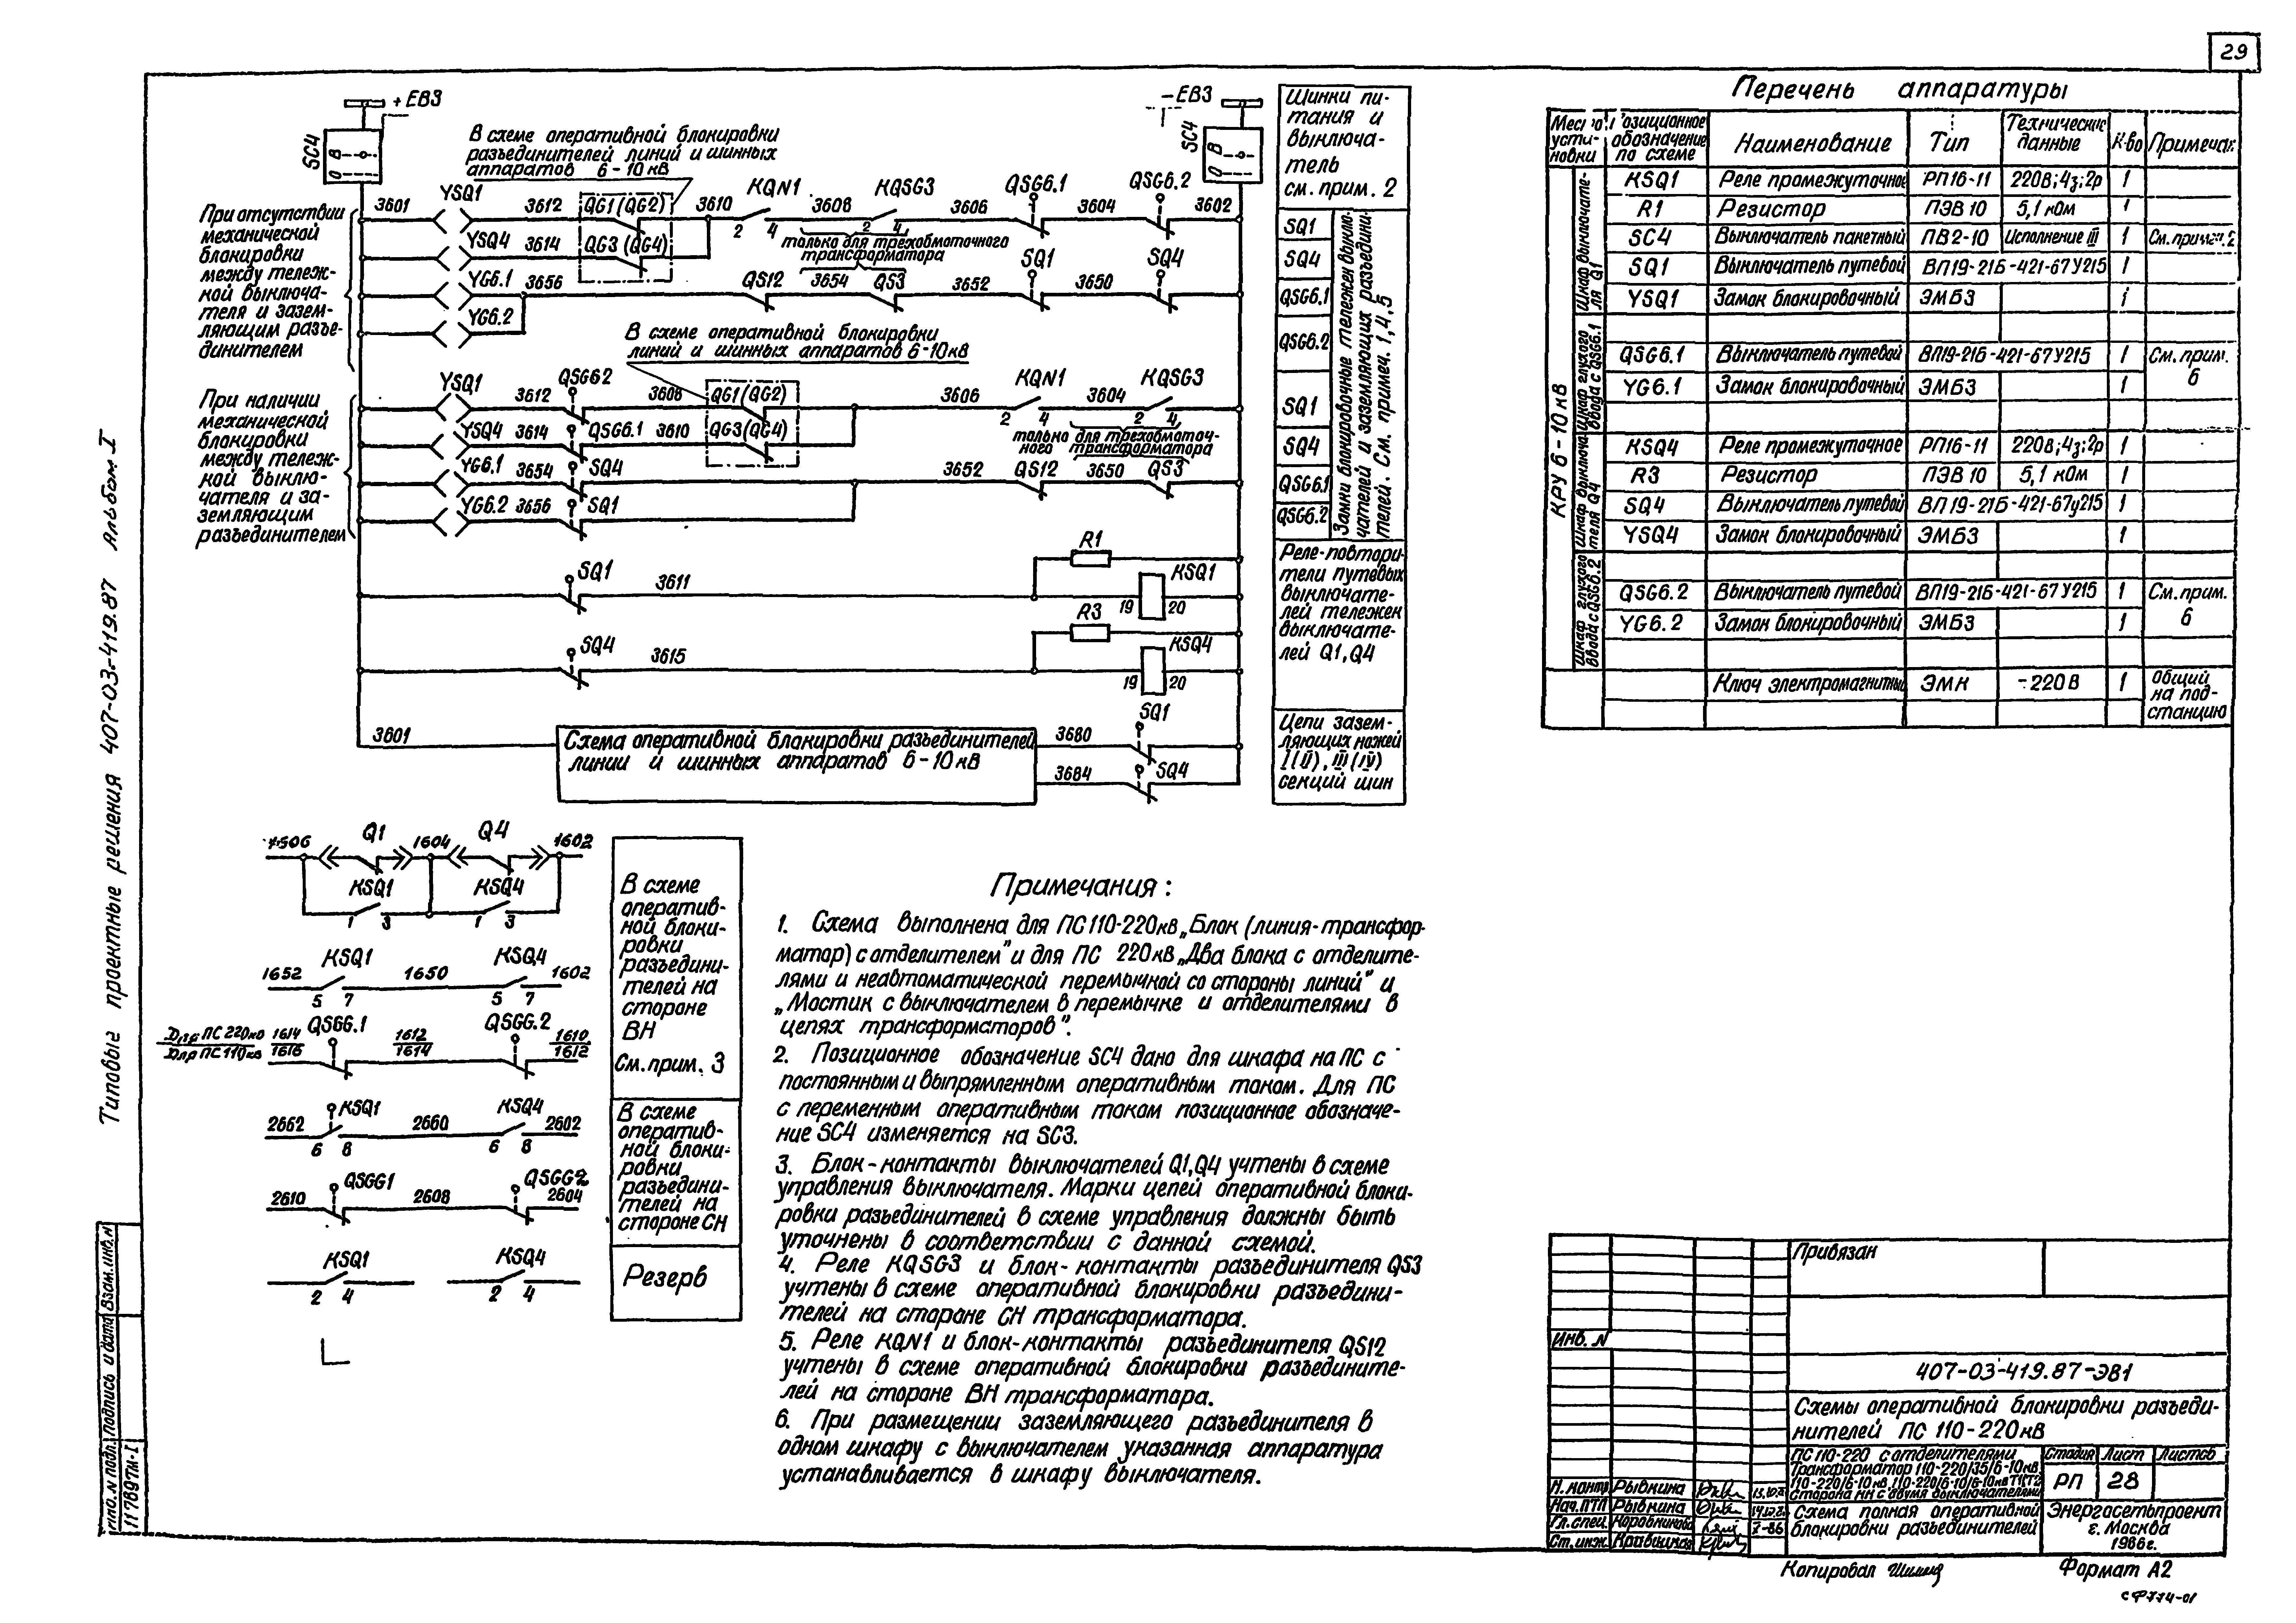 29
Типовые проектные решения 407-03-419.87 Альбом I
+EB3
-EB3
SC4
О В
SC4
О В
В схеме оперативной блокировки
разъединителей линий и шинных
аппаратов 6-10 кВ
При отсутствии
механической
блокировки
между тележ-
кой выключа-
теля и зазем-
ляющим разъе-
динителем
3601 YSQ1 3612 QG1(QG2) 3610 KQN1 3608 KQSG3 3606 QSG6.1 3604 QSG6.2 3602
2 4 2 4
YSQ4 3614 QG3(QG4)
только для трехобмоточного
трансформатора
YG6.1 3656 QS12 3654 QS3 3652 SQ1 3650 SQ4
YG6.2
В схеме оперативной блокировки
линий и шинных аппаратов 6-10кВ
При наличии
механической
блокировки
между тележ-
кой выклю-
чателя и за-
земляющим
разъединителем
YSQ1 3612 QSG62 3608 QG1(QG2) 3606 KQN1 3604 KQSG3
2 4 2 4
YSQ4 3614 QSG6.1 3610 QG3(QG4)
только для трехобмоточ-
ного трансформатора
YG6.1 3654 SQ4 3652 QS12 3650 QS3
YG6.2 3656 SQ1
R1
SQ1 3611 KSQ1
19 20
R3
SQ4 3615 KSQ4
19 20
3601
Схема оперативной блокировки разъединителей
линии и шинных аппаратов 6-10кВ
3680 SQ1
3684 SQ4
Шинки пи-
тания и
выключа-
тель
см. прим. 2
SQ1
SQ4
QSG6.1
QSG6.2
SQ1
SQ4
QSG6.1
QSG6.2
Замки блокировочные тележек выклю-
чателей и заземляющих разъедини-
телей. См. примеч. 1,4,5
Реле-повтори-
тели путевых
выключате-
лей тележек
выключате-
лей Q1,Q4
Цепи зазем-
ляющих ножей
I(II), III(IV)
секций шин
Q1 1604 Q4 1602
KSQ1 KSQ4
1 3 1 3
1652 KSQ1 1650 KSQ4 1602
5 7 5 7
Для ПС 220кВ 1614 QSG6.1 1612 QSG6.2 1610
Для ПС 110кВ 1616 1614 1612
2662 KSQ1 2660 KSQ4 2602
6 8 6 8
2610 QSGG1 2608 QSGG2 2604
KSQ1 KSQ4
2 4 2 4
В схеме
оператив-
ной блоки-
ровки
разъедини-
телей на
стороне
ВН
См. прим. 3
В схеме
оператив-
ной блоки-
ровки
разъедини-
телей на
стороне СН
Резерв
Примечания:
1. Схема выполнена для ПС 110-220кВ „Блок (линия-трансфор-
матор) с отделителем" и для ПС 220кВ „Два блока с отделите-
лями и неавтоматической перемычкой со стороны линий" и
„Мостик с выключателем в перемычке и отделителями в
цепях трансформаторов".
2. Позиционное обозначение SC4 дано для шкафа на ПС с
постоянным и выпрямленным оперативным током. Для ПС
с переменным оперативным током позиционное обозначе-
ние SC4 изменяется на SC3.
3. Блок-контакты выключателей Q1,Q4 учтены в схеме
управления выключателя. Марки цепей оперативной блоки-
ровки разъединителей в схеме управления должны быть
уточнены в соответствии с данной схемой.
4. Реле KQSG3 и блок-контакты разъединителя QS3
учтены в схеме оперативной блокировки разъедини-
телей на стороне СН трансформатора.
5. Реле KQN1 и блок-контакты разъединителя QS12
учтены в схеме оперативной блокировки разъедините-
лей на стороне ВН трансформатора.
6. При размещении заземляющего разъединителя в
одном шкафу с выключателем указанная аппаратура
устанавливается в шкафу выключателя.
Перечень аппаратуры
Место усти-новки Позиционное обозначение по схеме Наименование Тип Технические данные К-во Примечан
КРУ 6-10 кВ
Шкаф выключате-
ля Q1
KSQ1 Реле промежуточное РП16-11 220В;4з;2р 1
R1 Резистор ПЭВ 10 5,1 кОм 1
SC4 Выключатель пакетный ПВ2-10 Исполнение III 1 См. примеч. 2
SQ1 Выключатель путевой ВП19-21Б-421-67У215 1
YSQ1 Замок блокировочный ЭМБЗ 1
Шкаф глухого
ввода с QSG6.1
QSG6.1 Выключатель путевой ВП19-21Б-421-67У215 1 См. прим. 6
YG6.1 Замок блокировочный ЭМБЗ 1
Шкаф выключа-
теля Q4
KSQ4 Реле промежуточное РП16-11 220В;4з;2р 1
R3 Резистор ПЭВ 10 5,1 кОм 1
SQ4 Выключатель путевой ВП19-21Б-421-67У215 1
YSQ4 Замок блокировочный ЭМБЗ 1
Шкаф глухого
ввода с QSG6.2
QSG6.2 Выключатель путевой ВП19-21Б-421-67У215 1 См. прим. 6
YG6.2 Замок блокировочный ЭМБЗ 1
Ключ электромагнитный ЭМК -220В 1 Общий на под-станцию
Привязан
Инв. N
407-03-419.87-ЭВ1
Схемы оперативной блокировки разъеди-
нителей ПС 110-220кВ
ПС 110-220 с отделителями
Трансформатор 110-220/35/6-10кВ
Сторона НН с двумя выключателями
Стадия Лист Листов
РП 28
Схема полная оперативной
блокировки разъединителей
Энергосетьпроект
г. Москва
1986г.
Н. контр Рывкина
Нач. ПТП Рывкина
Гл. спец. Коровникова
Ст. инж.
Копировал
Формат А2
сф774-01
Инв. N подл. Подпись и дата Взам. инв. N
11789тм-I